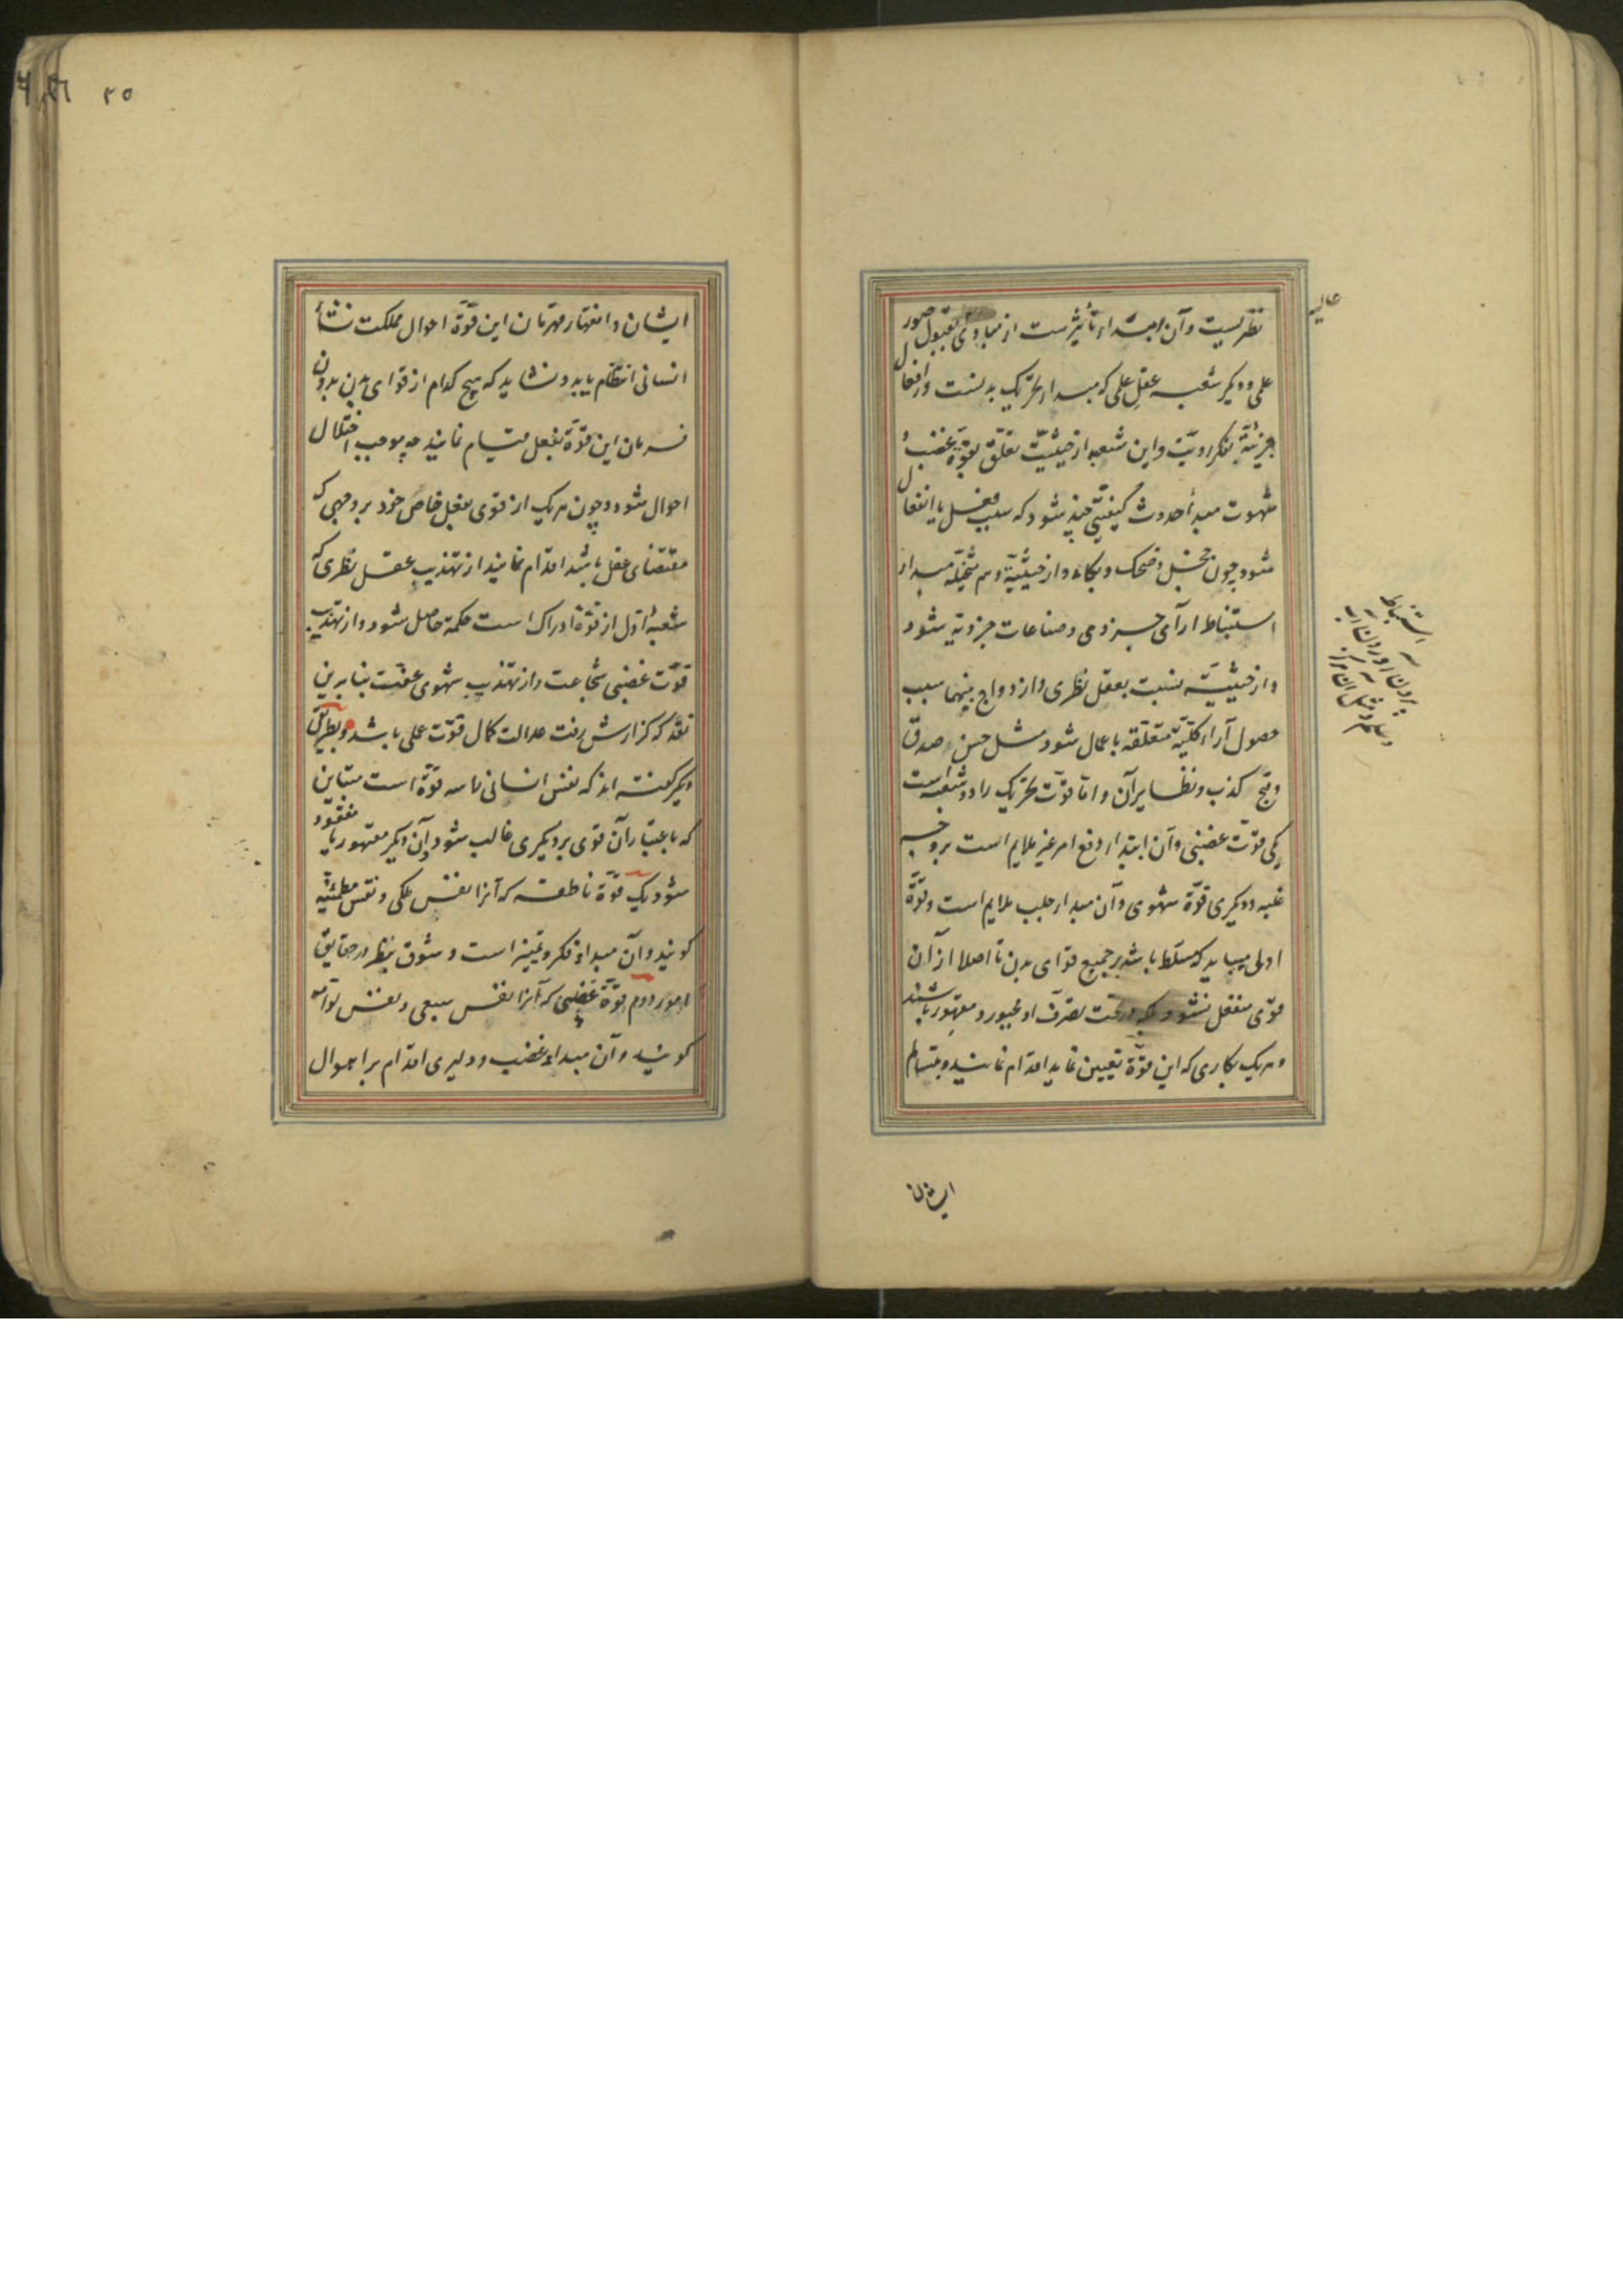 نظریست و آن مبداء تأثیرست از مبادی بقبول صور
عالیه
علمی و دیگر شعبه عقل علمی که مبداء تحریک بدنست در افعال
جزئیّة بفکر و رویّت و این شعبه از حیثیّت تعلّق بقوّة غضب و
شهوت مبدأ حدوث کیفیّتی چند شود که سبب فعل یا انفعال
شود چون خجل و ضحک و بکاء و از حیثیّة وهم متخیّله مبداء
استنباط ارآی جزوی و صناعات جزویّه شود
و از حیثیّت نسبت بعقل نظری و ازدواج بینهما سبب
حصول آراء کلّیّه متعلّقه باعمال شود مثل حسن صدق
و قبح کذب و نظایر آن و امّا قوّت تحریک را دو شعبه است
یکی قوّت غضبی و آن ابتداء دفع امر غیر ملایم است بر وجه
غلبه و دیگری قوّة شهوی و آن مبداء جلب ملایم است و قوّة
اولی میباید که مسلّط باشد بر جمیع قوای بدن تا اصلا از آن
قوی منفعل نشود بلکه در تحت تصرّف او مجبور و مقهور باشند
و هر یک بکاری که این قوّة تعیین نماید اقدام نمایند و بتسالم
استنباط
ایشان
۲۵
ایشان و انقهار قهرمان این قوّة احوال مملکت نشأ
انسانی انتظام یابد و نشاید که هیچ کدام از قوای بدن بدون
فرمان این قوّة بفعل قیام نمایند چه موجب اختلال
احوال شود و چون هر یک از قوی بفعل خاص خود بر وجهی که
مقتضای عقل باشد اقدام نمایند از تهذیب عقل نظری که
شعبهٔ اوّل از قوّة ادراک است حکمة حاصل شود و از تهذیب
قوّت غضبی شجاعت و از تهذیب شهوی عفّت بنابرین
نقد که گزارش رفت عدالت کمال قوّت عملی باشد و بطریق
دیگر گفته اند که نفس انسانی را سه قوّة است متباین
که باعتبار آن قوی بر دیگری غالب شود و آن دیگر مقهور یا مفقود
شود یک قوّة ناطقه که آنرا نفس ملکی و نفس مطمئنّه
گویند و آن مبداء فکر و تمییز است و شوق بنظر در حقایق
امور دوم قوّة غضبی که آنرا نفس سبعی و نفس لوّامه
گویند و آن مبداء غضب و دلیری اقدام بر اهوال